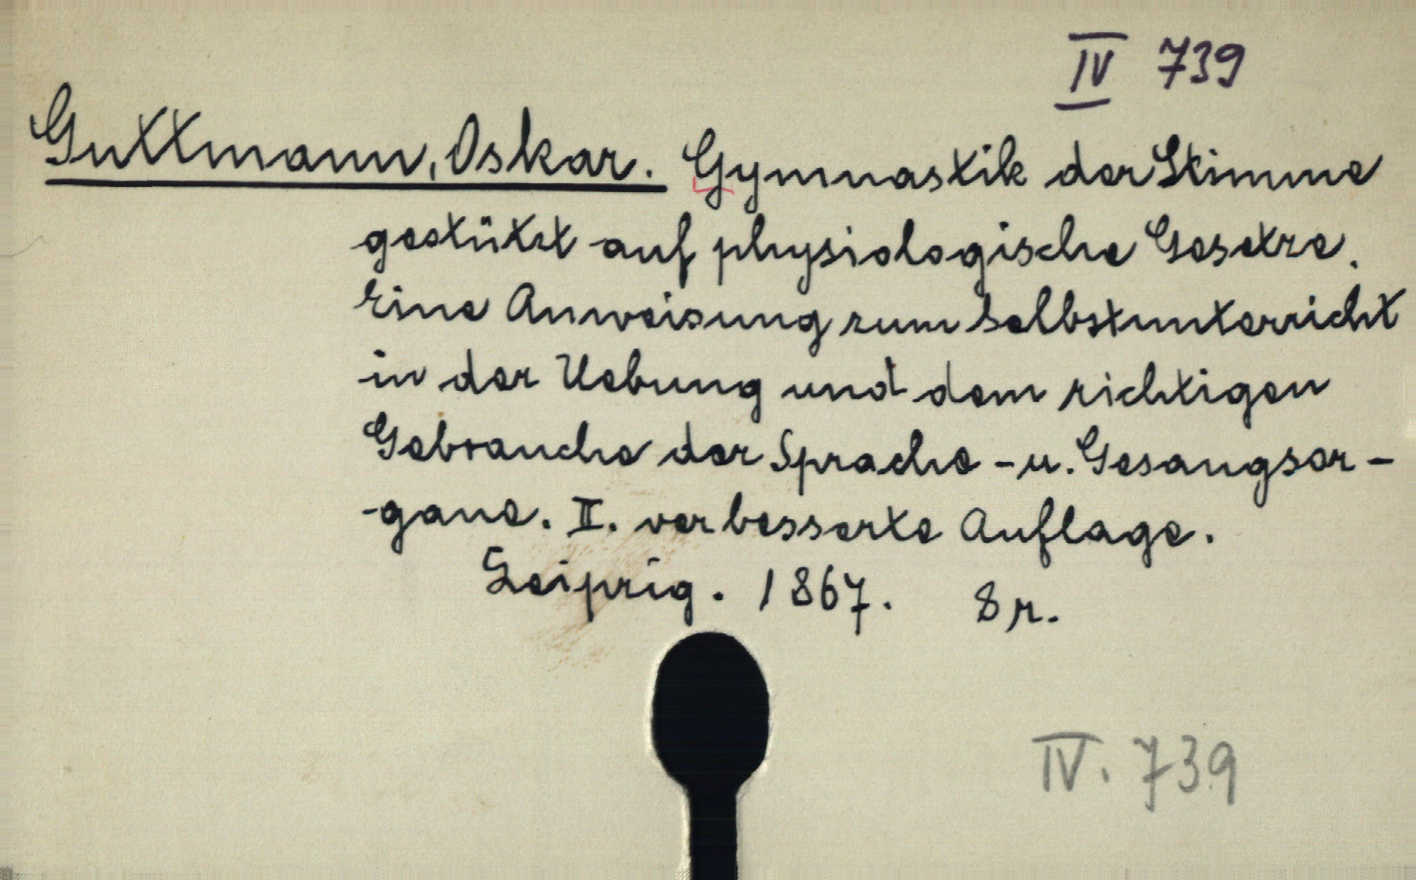 IV 739
Guttmann, Oskar. Gymnastik der Stimme
gestützt auf physiologische Gesetze.
Eine Anweisung zum Selbstunterricht
in der Uebung und dem richtigen
Gebrauche der Sprache - u. Gesangsor-
-gane. II. verbesserte Auflage.
Leipzig. 1867. 8 r.
IV. 739